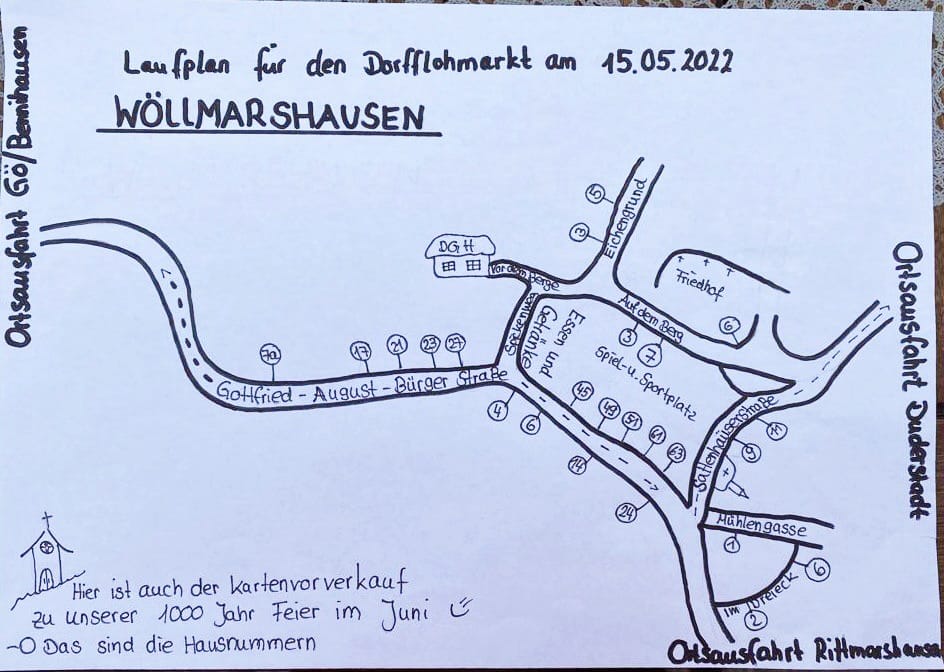 Laufplan für den Dorfflohmarkt am 15.05.2022
WÖLLMARSHAUSEN
Ortsausfahrt Gö/Benniehausen
Eichengrund
5
3
DGH
Vor dem Berge
Friedhof
Auf dem Berg
3
7
6
Ortsausfahrt Duderstadt
Essen und
Getränke
Spiel-u. Sportplatz
7a
17
21
23
27
Gottfried-August-Bürger Straße
4
6
14
24
45
49
51
61
63
Sattenhäuserstraße
11
9
Mühlengasse
1
6
Im Dreieck
2
Ortsausfahrt Rittmarshausen
Hier ist auch der Kartenvorverkauf
zu unserer 1000 Jahr Feier im Juni
-O Das sind die Hausnummern